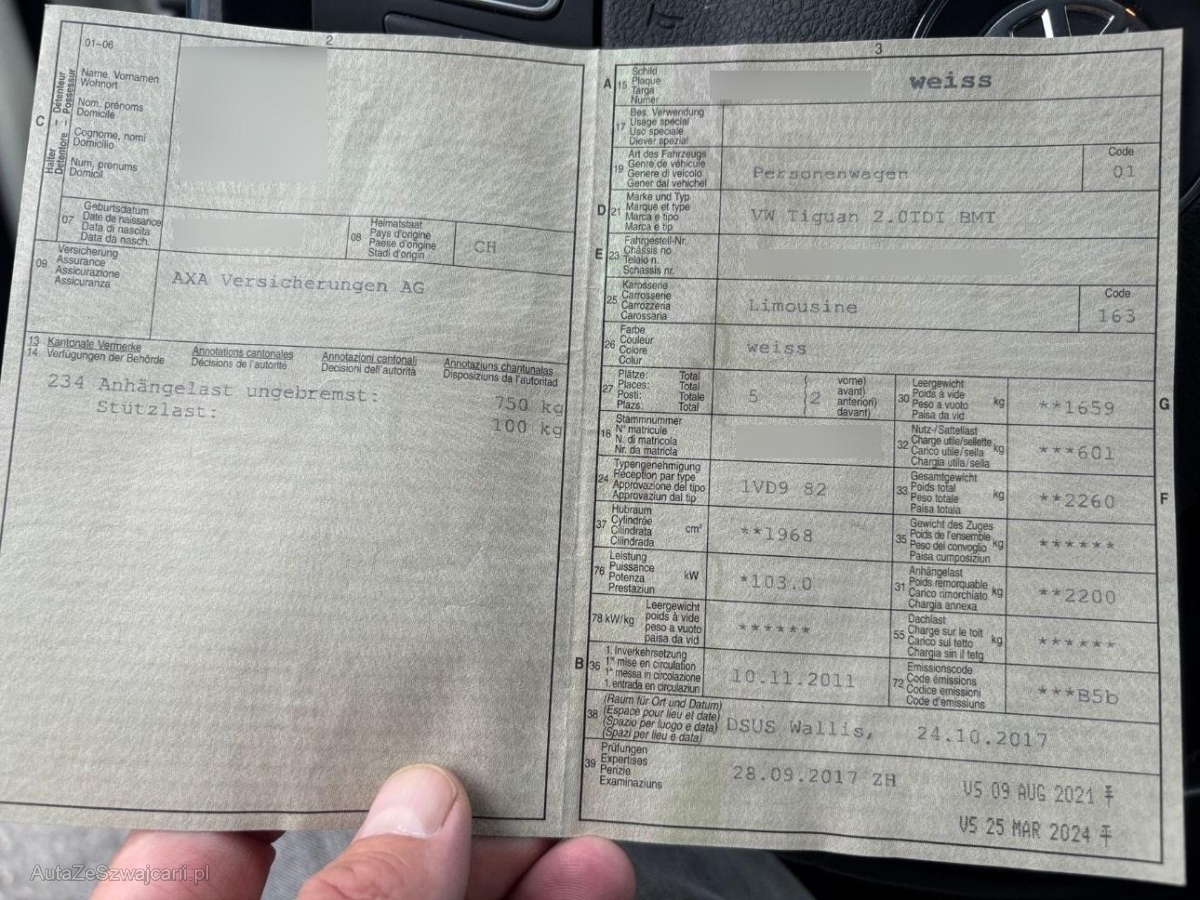 2
01-06
C
Halter Détenteur
Detentore Possessur
Name, Vornamen
Wohnort
Nom, prénoms
Domicile
Cognome, nomi
Domicilio
Num, prenums
Domicil
07
Geburtsdatum
Date de naissance
Data di nascita
Data da nasch.
08
Heimatstaat
Pays d'origine
Paese d'origine
Stadi d'origin
CH
09
Versicherung
Assurance
Assicurazione
Assicuranza
AXA Versicherungen AG
13 Kantonale Vermerke Annotations cantonales Annotazioni cantonali Annotaziuns chantunalas
14 Verfügungen der Behörde Décisions de l'autorité Decisioni dell'autorità Disposiziuns da l'autoritad
234 Anhängelast ungebremst: 750 kg
Stützlast: 100 kg
3
A 15
Schild
Plaque
Targa
Numer
weiss
17
Bes. Verwendung
Usage spécial
Uso speciale
Diever spezial
19
Art des Fahrzeugs
Genre de véhicule
Genere di veicolo
Gener dal vehichel
Personenwagen
Code
01
D 21
Marke und Typ
Marque et type
Marca e tipo
Marca e tip
VW Tiguan 2.0TDI BMT
E 23
Fahrgestell-Nr.
Châssis no
Telaio n.
Schassis nr.
25
Karosserie
Carrosserie
Carrozzeria
Carossaria
Limousine
Code
163
26
Farbe
Couleur
Colore
Colur
weiss
27
Plätze: Total
Places: Total
Posti: Totale
Plazs: Total
5
2
vorne)
avant)
anteriori)
davant)
30
Leergewicht
Poids à vide
Peso a vuoto
Paisa da vid
kg
**1659
G
18
Stammnummer
N° matricule
N. di matricola
Nr. da matricla
32
Nutz-/Sattellast
Charge utile/sellette
Carico utile/sella
Chargia utila/sella
kg
***601
24
Typengenehmigung
Réception par type
Approvazione del tipo
Approvaziun dal tip
1VD9 82
33
Gesamtgewicht
Poids total
Peso totale
Paisa totala
kg
**2260
F
37
Hubraum
Cylindrée
Cilindrata
Cilindrada
cm³
**1968
35
Gewicht des Zuges
Poids de l'ensemble
Peso del convoglio
Paisa cumposiziun
kg
******
76
Leistung
Puissance
Potenza
Prestaziun
kW
*103.0
31
Anhängelast
Poids remorquable
Carico rimorchiato
Chargia annexa
kg
**2200
78 kW/kg
Leergewicht
poids à vide
peso a vuoto
paisa da vid
******
55
Dachlast
Charge sur le toit
Carico sul tetto
Chargia sin il tetg
kg
******
B 36
1. Inverkehrsetzung
1re mise en circulation
1a messa in circolazione
1. entrada en circulaziun
10.11.2011
72
Emissionscode
Code émissions
Codice emissioni
Code d'emissiuns
***B5b
38
(Raum für Ort und Datum)
(Espace pour lieu et date)
(Spazio per luogo e data)
(Spazi per lieu e data)
DSUS Wallis, 24.10.2017
39
Prüfungen
Expertises
Perizie
Examinaziuns
28.09.2017 ZH
VS 09 AUG 2021
VS 25 MAR 2024
AutaZeSzwajcarii.pl